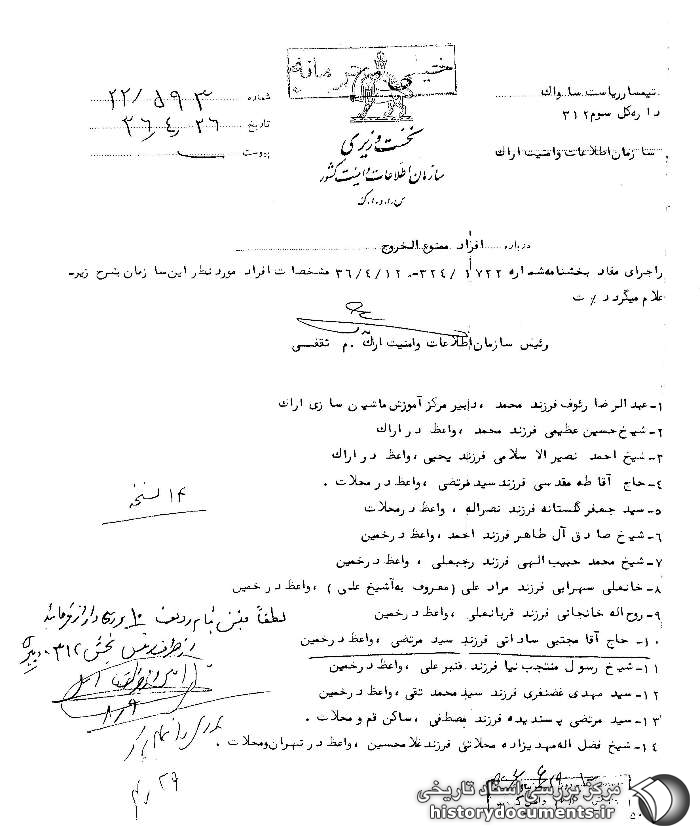 خیلی محرمانه
نخست وزیری
سازمان اطلاعات و امنیت کشور
س.ا.و.ا.ک
شماره ۲۲/۵۹۳
تاریخ ۳۶/۴/۲۶
پیوست
تیمسار ریاست ساواک
داره کل سوم ۳۱۲
سازمان اطلاعات و امنیت اراک
درباره افراد ممنوع الخروج
راجرای مفاد بخشنامه شماره ۱۷۲۲/۳۲۴-۳۶/۴/۱۲ مشخصات افراد مورد نظر این سازمان بشرح زیر-
علام میگردد٪ ت
رئیس سازمان اطلاعات و امنیت اراک .م ثقفی
۱- عبدالرضا رئوف فرزند محمد ،دبیر مرکز آموزش ماشین سازی اراک
۲- شیخ حسین عظیمی فرزند محمد ،واعظ در اراک
۳- شیخ احمد نصیرالاسلامی فرزند یحیی ،واعظ در اراک
۴- حاج آقا طه مقدسی فرزند سید مرتضی ،واعظ در محلات .
۵- سید جعفر گلستانه فرزند نصراله ، واعظ درمحلات
۶- شیخ صادق آل طاهر فرزند احمد، واعظ درخمین
۷- شیخ محمد حبیب الهی فرزند رجبعلی ، واعظ درخمین
۸- خانعلی سهرابی فرزند مراد علی (معروف به آشیخ علی ) ،واعظ در خمین
۹- روح اله خانجانی فرزند قربانعلی، واعظ درخمین
۱۰- حاج آقا مجتبی ساداتی فرزند سید مرتضی ،واعظ درخمین
۱۱- شیخ رسول منتجب نیا فرزند قنبر علی ،واعظ درخمین
۱۲- سید مهدی غضنفری فرزند سید محمد تقی ،واعظ درخمین
۱۳- سید مرتضی پسندیده فرزند مصطفی ،ساکن قم و محلات .
۱۴- شیخ فضل اله مهدیزاده محلاتی فرزند غلامحسین ،واعظ در تهران ومحلات .
۱۴ نسخه
لطفاً
از طرف رئیس بخش ۳۱۲
۸/۹
۲۹
مرکز بررسی اسناد تاریخی
historydocuments.ir